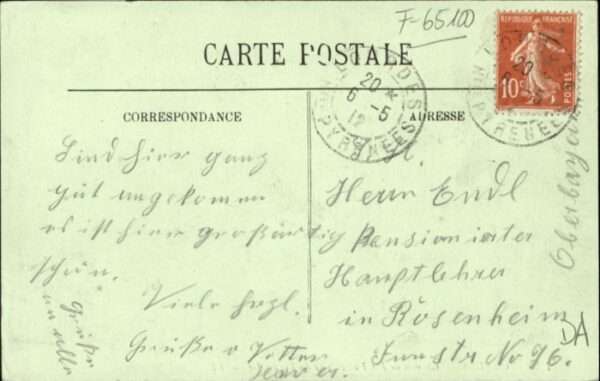 F-65100
CARTE POSTALE
RÉPUBLIQUE FRANÇAISE
10c
POSTES
20 *
6 -5
12
PYRENEES
CORRESPONDANCE
ADRESSE
Sind hier ganz
gut angekommen
es ist hier großartig
schön.
Viele herzl.
Grüße v Vetter
Grüße
an alle
Herrn Endl
Pensionierter
Hauptlehrer
in Rosenheim
No 96.
Oberbayern
DA